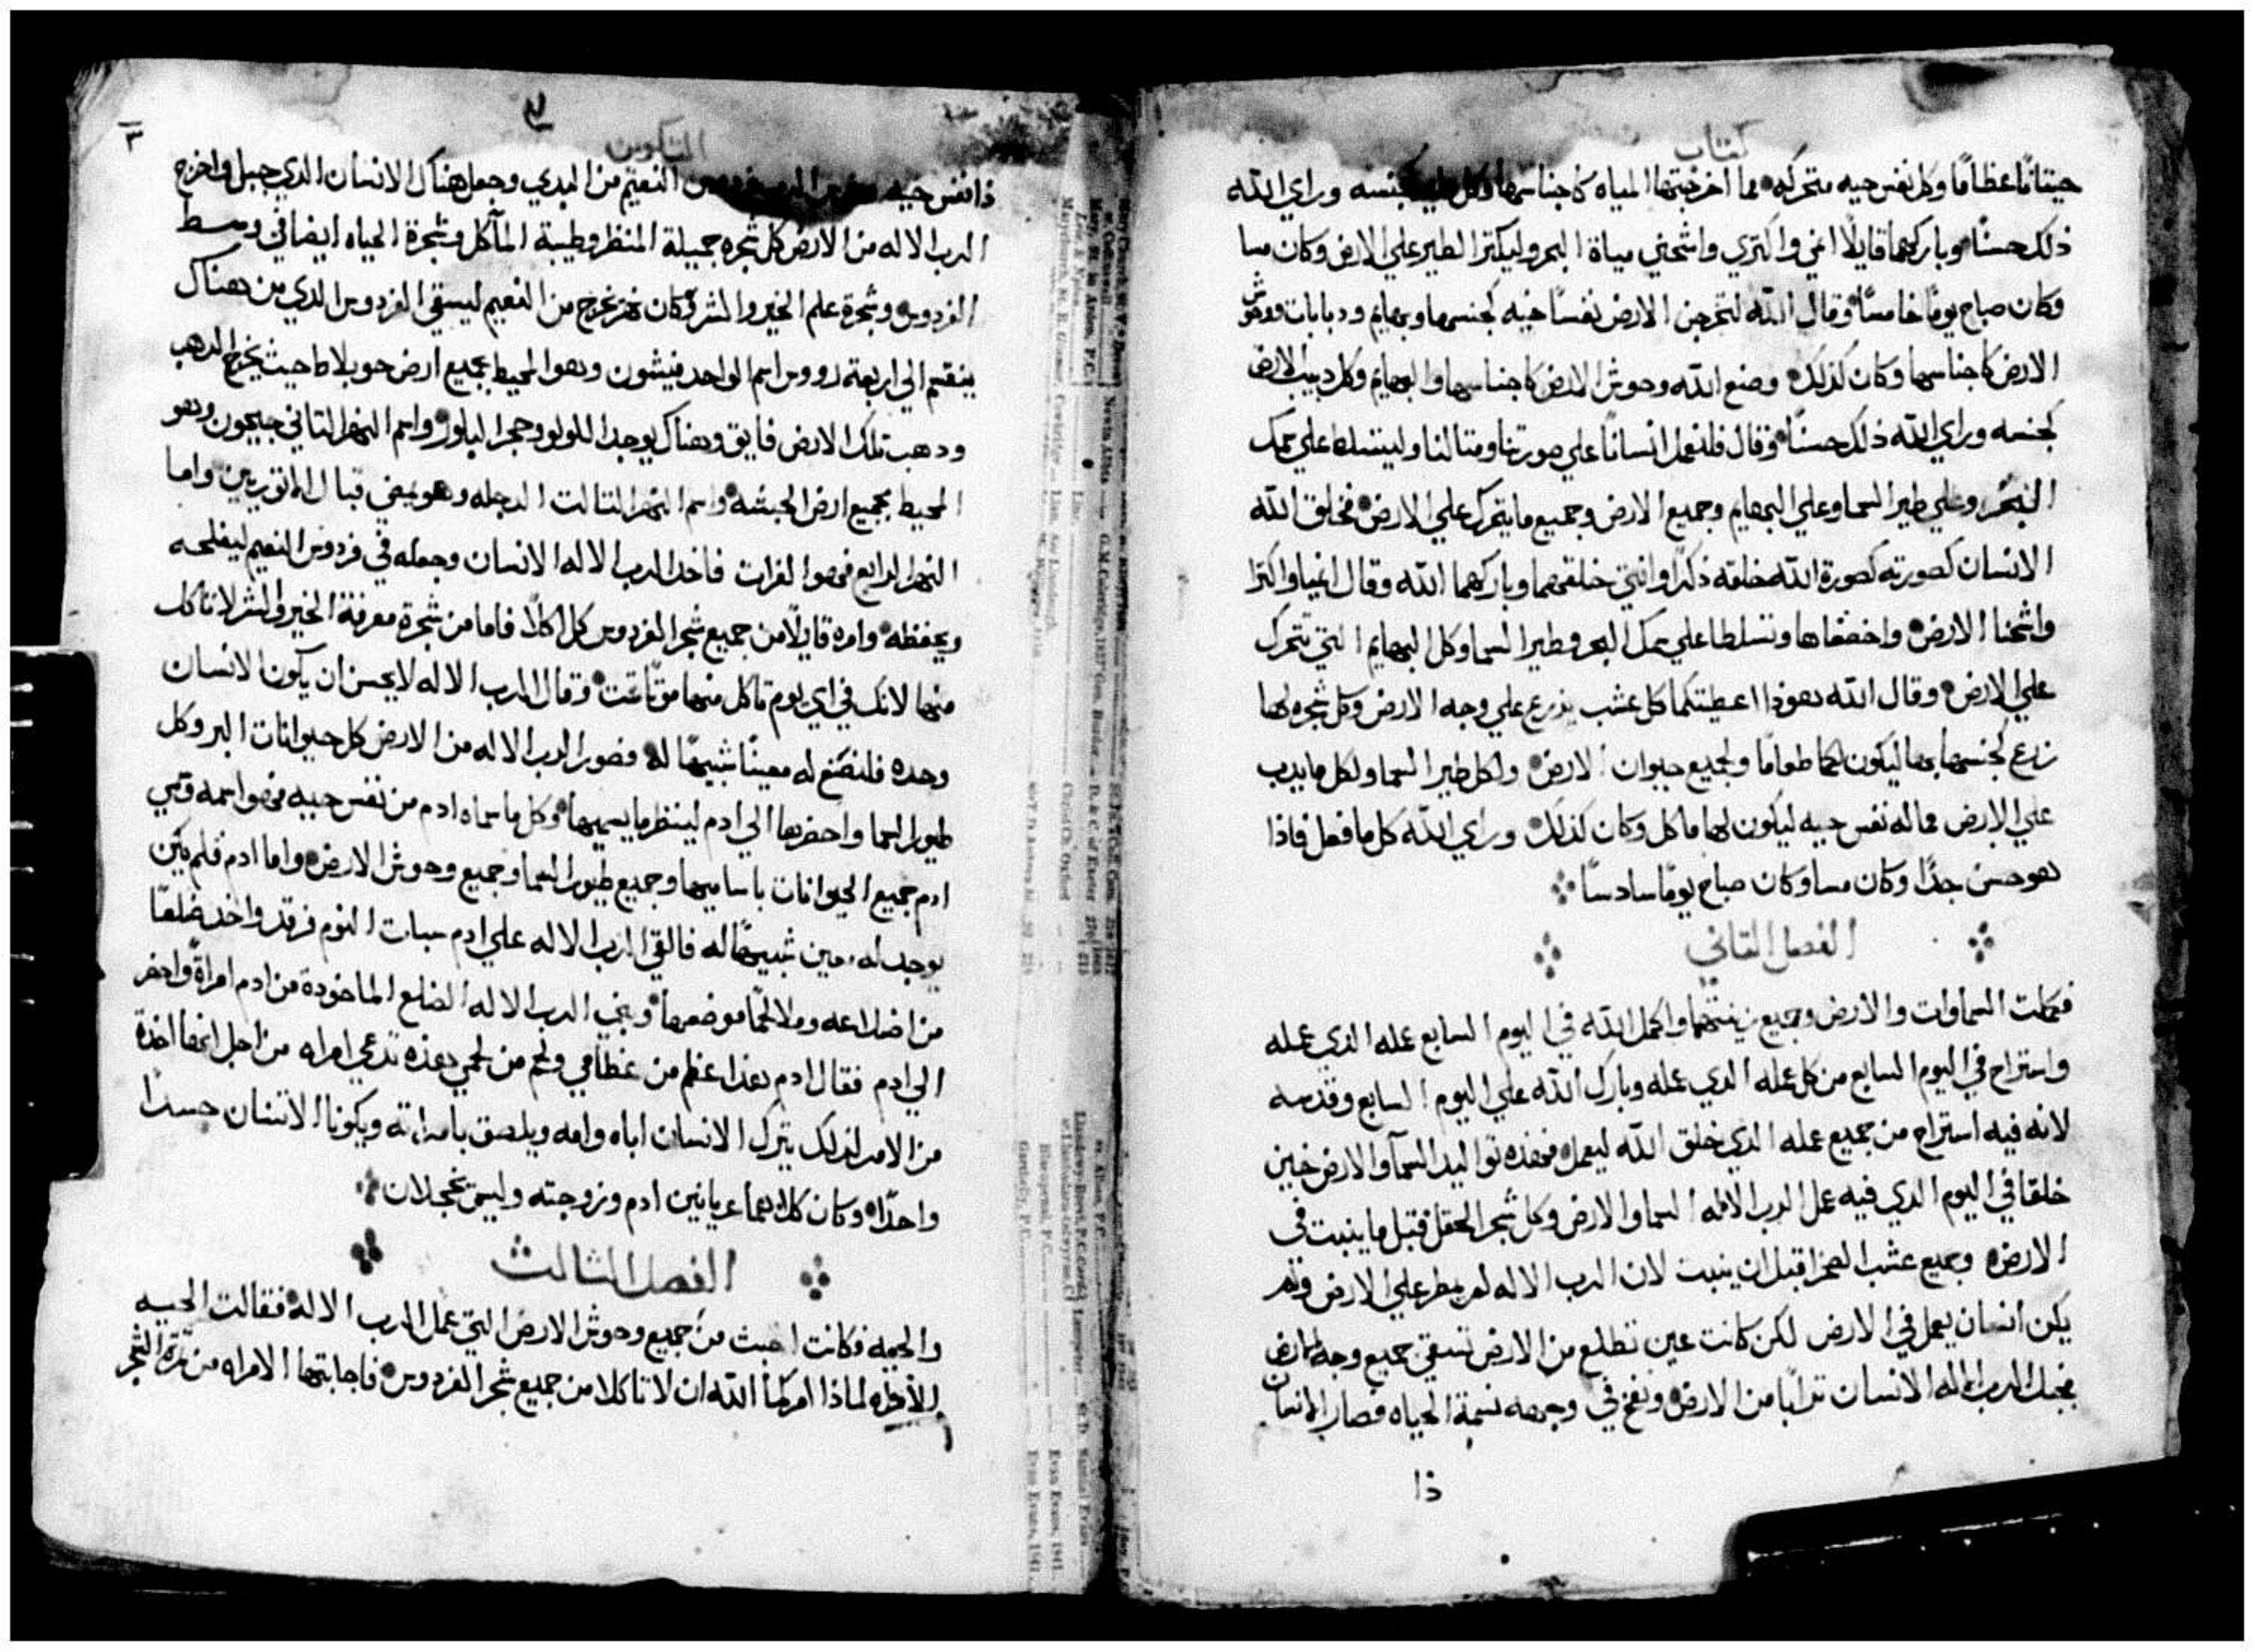 كتاب
حيتانًا عظامًا وكل نفس حيه متحركه مما اخرجتها المياه كاجناسها وكل طير كجنسه وراي الله
ذلك حسنًا وباركهما قايلًا انمي واكثري واشحني مياة البحر وليكثر الطير علي الارض وكان مسا
وكان صباح يومًا خامسًا وقال الله لتخرجن الارض نفسًا حيه كجنسها وبهايم ودبابات ووحوش
الارض كاجناسها وكان كذلك وصنع الله وحوش الارض كاجناسها والبهايم وكل دبيب الارض
كجنسه وراي الله ذلك حسنًا وقال فلنعمل انسانًا علي صورتنا ومثالنا وليتسلط علي سمك
البحر وعلي طير السما وعلي البهايم وجميع الارض وجميع ما يتحرك علي الارض فخلق الله
الانسان كصورته كصورة الله خلقه ذكرًا وانثي خلقهما وباركهما الله وقال انميا واكثرا
واشحنا الارض واخضعاها وتسلطا علي سمك البحر وطير السما وكل البهايم التي تتحرك
علي الارض وقال الله هوذا اعطيتكما كل عشب يزرع علي وجه الارض وكل شجره لها
زرع لجنسها بها ليكون لكما طعامًا ولجميع حيوان الارض ولكل طير السما ولكل ما يدب
علي الارض مما له نفس حيه ليكون لها ماكل وكان كذلك وراي الله كل ما فعل فاذا
هو حسن جدًا وكان مسا وكان صباح يومًا سادسًا
الفصل الثاني
فكملت السماوات والارض وجميع زينتهما واكمل الله في اليوم السابع عمله الذي عمله
واستراح في اليوم السابع من كل عمله الدي عمله وبارك الله علي اليوم السابع وقدسه
لانه فيه استراح من جميع عمله الذي خلق الله ليعمل فهذه تواليد السمآ والارض حين
خلقا في اليوم الدي فيه عمل الرب الاله السما والارض وكل شجر الحقل قبل ما ينبت في
الارض وجميع عشب الصحرا قبل ان ينبت لان الرب الاله لم يمطر علي الارض ولم
يكن انسان يعمل في الارض لكن كانت عين تطلع من الارض تسقي جميع وجه الارض
فجبل الرب الاله الانسان ترابًا من الارض ونفخ في وجهه نسمة الحياه فصار الانسان
ذا
التكوين
٣
ذا نفس حيه النعيم من البدي وجعل هناك الانسان الدي جبل واخرج
الرب الاله من الارض كل شجره جميلة المنظر وطيبة المآكل وشجرة الحياه ايضا في وسط
الفردوس وشجرة علم الخير والشر وكان نهر يخرج من النعيم ليسقي الفردوس الدي من هناك
ينقسم الي اربعة رووس اسم الواحد فيشون وهوا المحيط بجميع ارض حويلاط حيث يخرج الدهب
ودهب تلك الارض فايق وهناك يوجد اللولو وحجر البلور واسم النهر التاني جيحون وهو
المحيط بجميع ارض الحبشه واسم النهر التالت الدجله وهو يمضي قبال الاتوريين واما
النهر الرابع فهوا الفرات فاخد الرب الاله الانسان وجعله في فردوس النعيم ليفلحه
ويحفظه وامره قايلًا من جميع شجر الفردوس كل اكلًا فاما من شجرة معرفة الخير والشر لا تاكل
منها لانك في اي يوم تاكل منها موتًا تمت وقال الرب الاله لا يحسن ان يكون الانسان
وحده فلنصنع له معينًا شبيهًا له فصور الرب الاله من الارض كل حيوانات البر وكل
طيور السما واحضرها الي ادم لينظر ما يسميها وكل ما سماه ادم من نفس حييه فهو اسمه وسمي
ادم جميع الحيوانات باساميها وجميع طيور السما وجميع وحوش الارض واما ادم فلم يكن
يوجد له معين شبيهًا له فالقي الرب الاله علي ادم سبات النوم فرقد واخد ضلعًا
من اضلاعه وملا لحمًا موضعها وبني الرب الاله الضلع الماخوذة من ادم امراةً واحضر
الي ادم فقال ادم هذا عظم من عظامي ولحم من لحمي هذه تدعي امراه من اجل انها اخذة
من الامر لذلك يترك الانسان اباه وامه ويلصق بامراته ويكونا الاتنان جسدًا
واحدًا وكان كلاهما عريانين ادم وزوجته وليس يخجلان
الفصل الثالث
والحيه فكانت اخبث من جميع وحوش الارض التي عمل الرب الاله فقالت الحييه
للامراه لماذا امركما الله ان لا تاكلا من جميع شجر الفردوس فاجابتها الامراه من تمرة الشجر